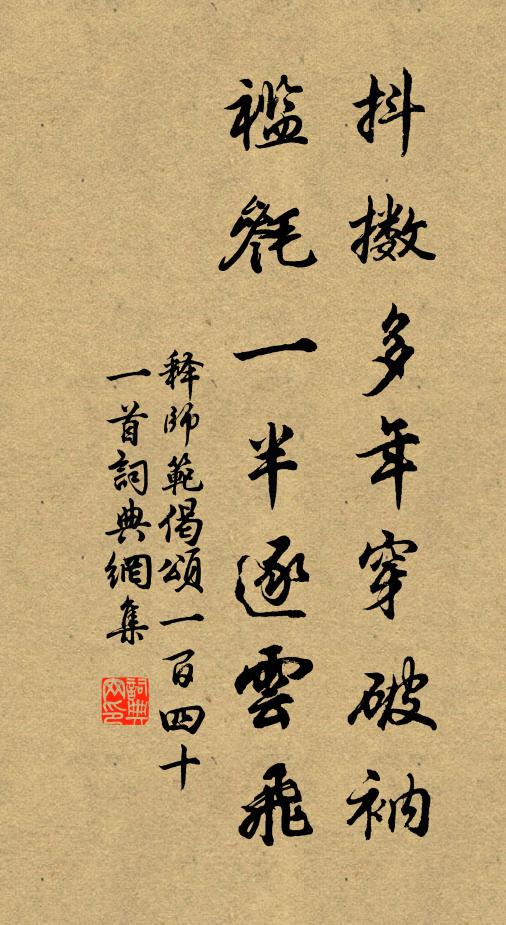 抖擻多年穿破衲
襤毿一半逐雲飛
释師範偈頌一百四十
一首詞典網集
詞典网印